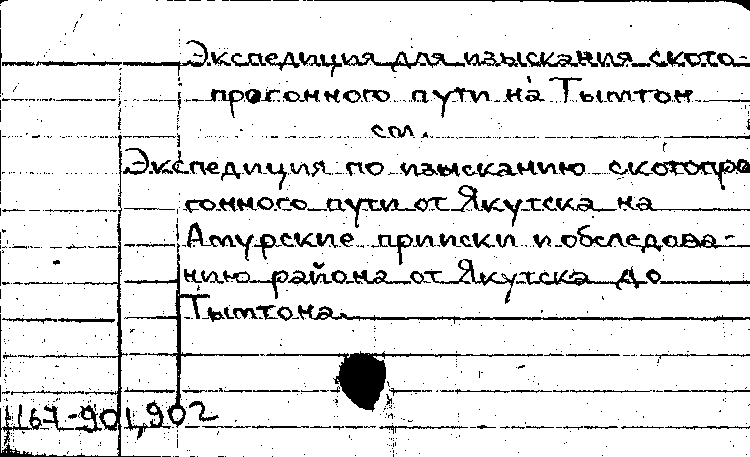 Экспедиция для изыскания ското-
прогонного пути на Тымтон
см.
Экспедиция по изысканию скотопро
гонного пути от Якутска на
Амурские прииски и обследова-
нию района от Якутска до
Тымтона.
1167-901,902